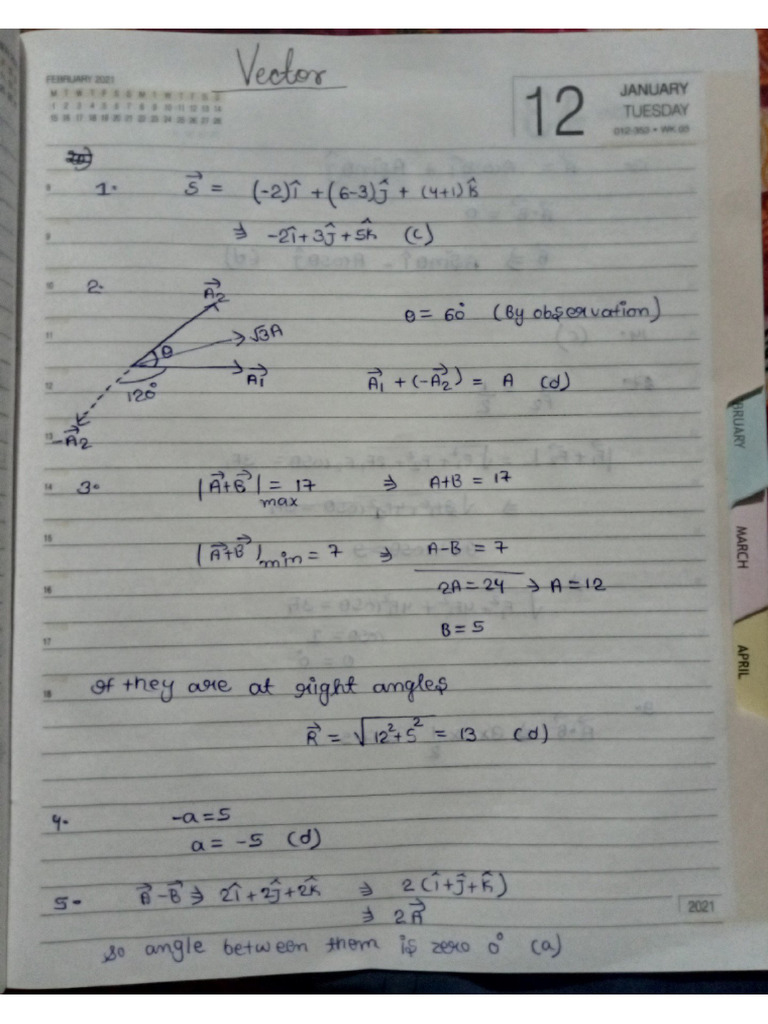 Vector
FEBRUARY 2021
M T W T F S S M T W T F S S
1 2 3 4 5 6 7 8 9 10 11 12 13 14
15 16 17 18 19 20 21 22 23 24 25 26 27 28
12
JANUARY
TUESDAY
012-353 • WK 03
1. S⃗ = (-2)î + (6-3)ĵ + (4+1)k̂
⇒ -2î+3ĵ+5k̂ (c)
2. A⃗2
θ = 60° (By observation)
√3A
θ
A⃗1
120°
A⃗1 + (-A⃗2) = A (d)
-A⃗2
3. |A⃗+B⃗|max = 17 ⇒ A+B = 17
|A⃗+B⃗|min = 7 ⇒ A-B = 7
2A = 24 → A = 12
B = 5
If they are at right angles
R⃗ = √12²+5² = 13 (d)
4. -a = 5
a = -5 (d)
5. A⃗-B⃗ ⇒ 2î+2ĵ+2k̂ ⇒ 2(î+ĵ+k̂)
⇒ 2A⃗
so angle between them is zero 0° (a)
9
10
11
12
13
14
15
16
17
18
2021
BRUARY
MARCH
APRIL